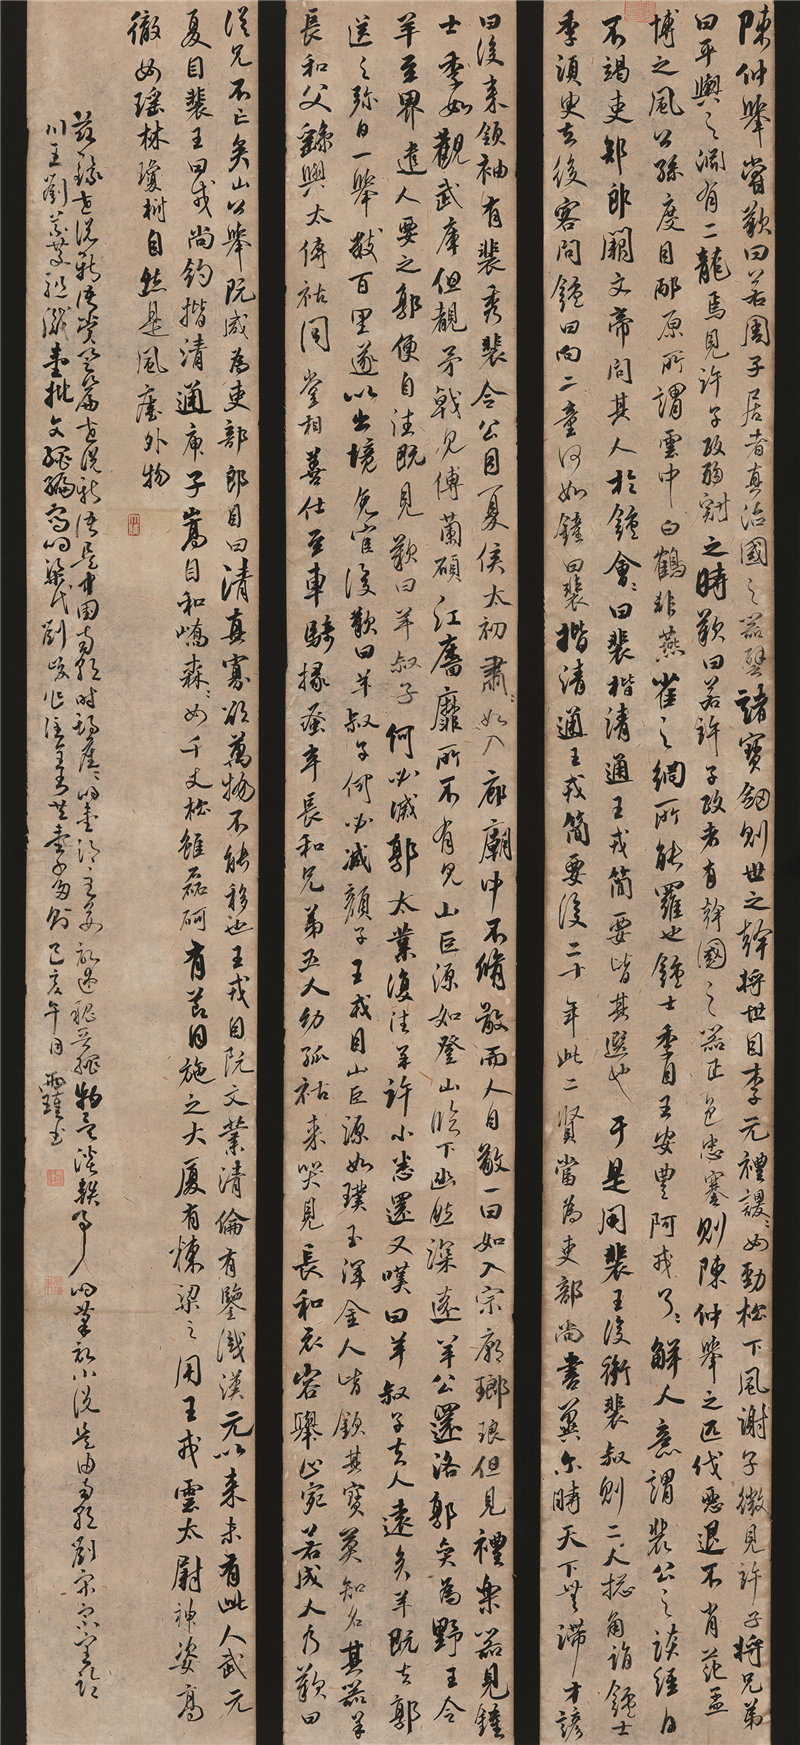 陳仲舉嘗歎曰若周子居者真治國之器譬諸寶劍則世之幹將世目李元禮謖〻如勁松下風謝子微見許子將兄弟
曰平輿之淵有二龍焉見許子政弱冠之時歎曰若許子政者有幹國之器正色忠謇則陳仲舉之匹伐惡退不肖范孟
博之風公孫度目邴原所謂雲中白鶴非燕雀之網所能羅也鍾士季目王安豐阿戎了〻解人意謂裴公之談經日
不竭吏部郎闕文帝問其人於鍾會〻曰裴楷清通王戎簡要皆其選也于是用裴王濬沖裴叔則二人摠角詣鍾士
季須臾去後客問鍾曰向二童何如鍾曰裴楷清通王戎簡要後二十年此二賢當為吏部尚書冀尔時天下無滯才諺
曰後來領袖有裴秀裴令公目夏侯太初肅〻如入廊廟中不脩敬而人自敬一曰如入宗廟瑯琅但見禮樂器見鍾
士季如觀武庫但覩矛戟見傅蘭碩江廧靡所不有見山巨源如登山臨下幽然深遠羊公還洛郭奕為野王令
羊至界遣人要之郭便自往既見歎曰羊叔子何必減郭太業復往羊許小悉還又嘆曰羊叔子去人遠矣羊既去郭
送之弥日一舉數百里遂以出境免官復歎曰羊叔子何必減顏子王戎目山巨源如璞玉渾金人皆欽其寶莫知名其器羊
長和父繇與太傅祜同堂相善仕至車騎掾蚤卒長和兄弟五人幼孤祜來哭見長和衣容舉止宛若成人乃歎曰
從兄不亡矣山公舉阮咸為吏部郎目曰清真寡欲萬物不能移也王戎目阮文業清倫有鑒識漢元以來未有此人武元
夏目裴王曰戎尚約楷清通庾子嵩目和嶠森〻如千丈松雖磊砢有節目施之大厦有棟梁之用王戎雲太尉神姿高
徹如瑤林瓊樹自然是風塵外物
茲録世說新語賞譽篇世說新語是中國南朝時期産〻的主要記述魏晉人物言談軼事的筆記小說是由南朝劉宋宗室臨
川王劉義慶組織一批文人編寫的梁代劉峻作注己亥午月書